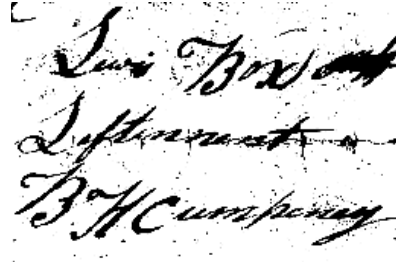 Lewis Box
Leftennant
B H Cumpeney